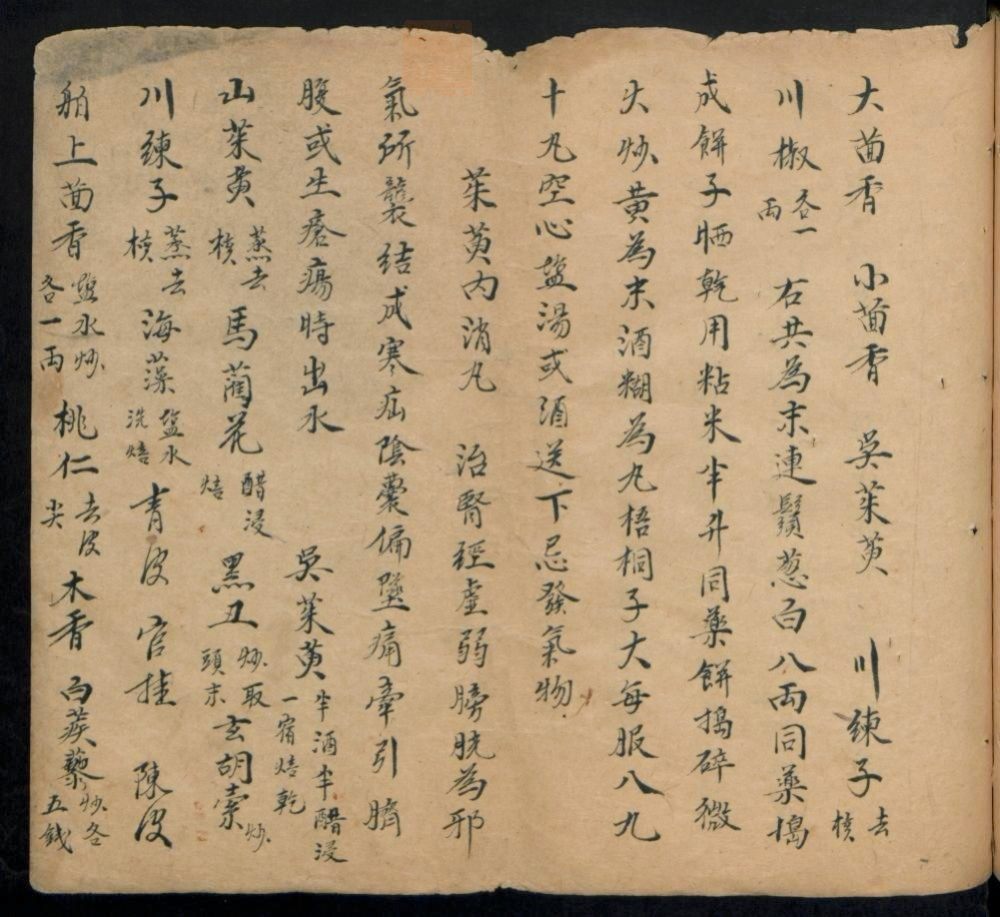 大茴香 小茴香 吳茱萸 川練子去核
川椒各一兩 右共為末連鬚葱白八兩同藥搗
成餅子晒乾用粘米半升同藥餅搗碎微
火炒黃為末酒糊為丸梧桐子大每服八九
十丸空心盐湯或酒送下忌發氣物
茱萸內消丸 治腎經虛弱膀胱為邪
氣所襲結成寒疝陰囊偏墜痛牽引臍
腹或生瘡瘍時出水 吳茱萸半酒半醋浸一宿焙乾
山茱萸蒸去核 馬藺花醋浸焙 黑丑炒取頭末 玄胡索炒
川練子蒸去核 海藻盐水洗焙 青皮 官桂 陳皮
舶上茴香盐水炒各一兩 桃仁去皮尖 木香 白蒺藜炒各五錢